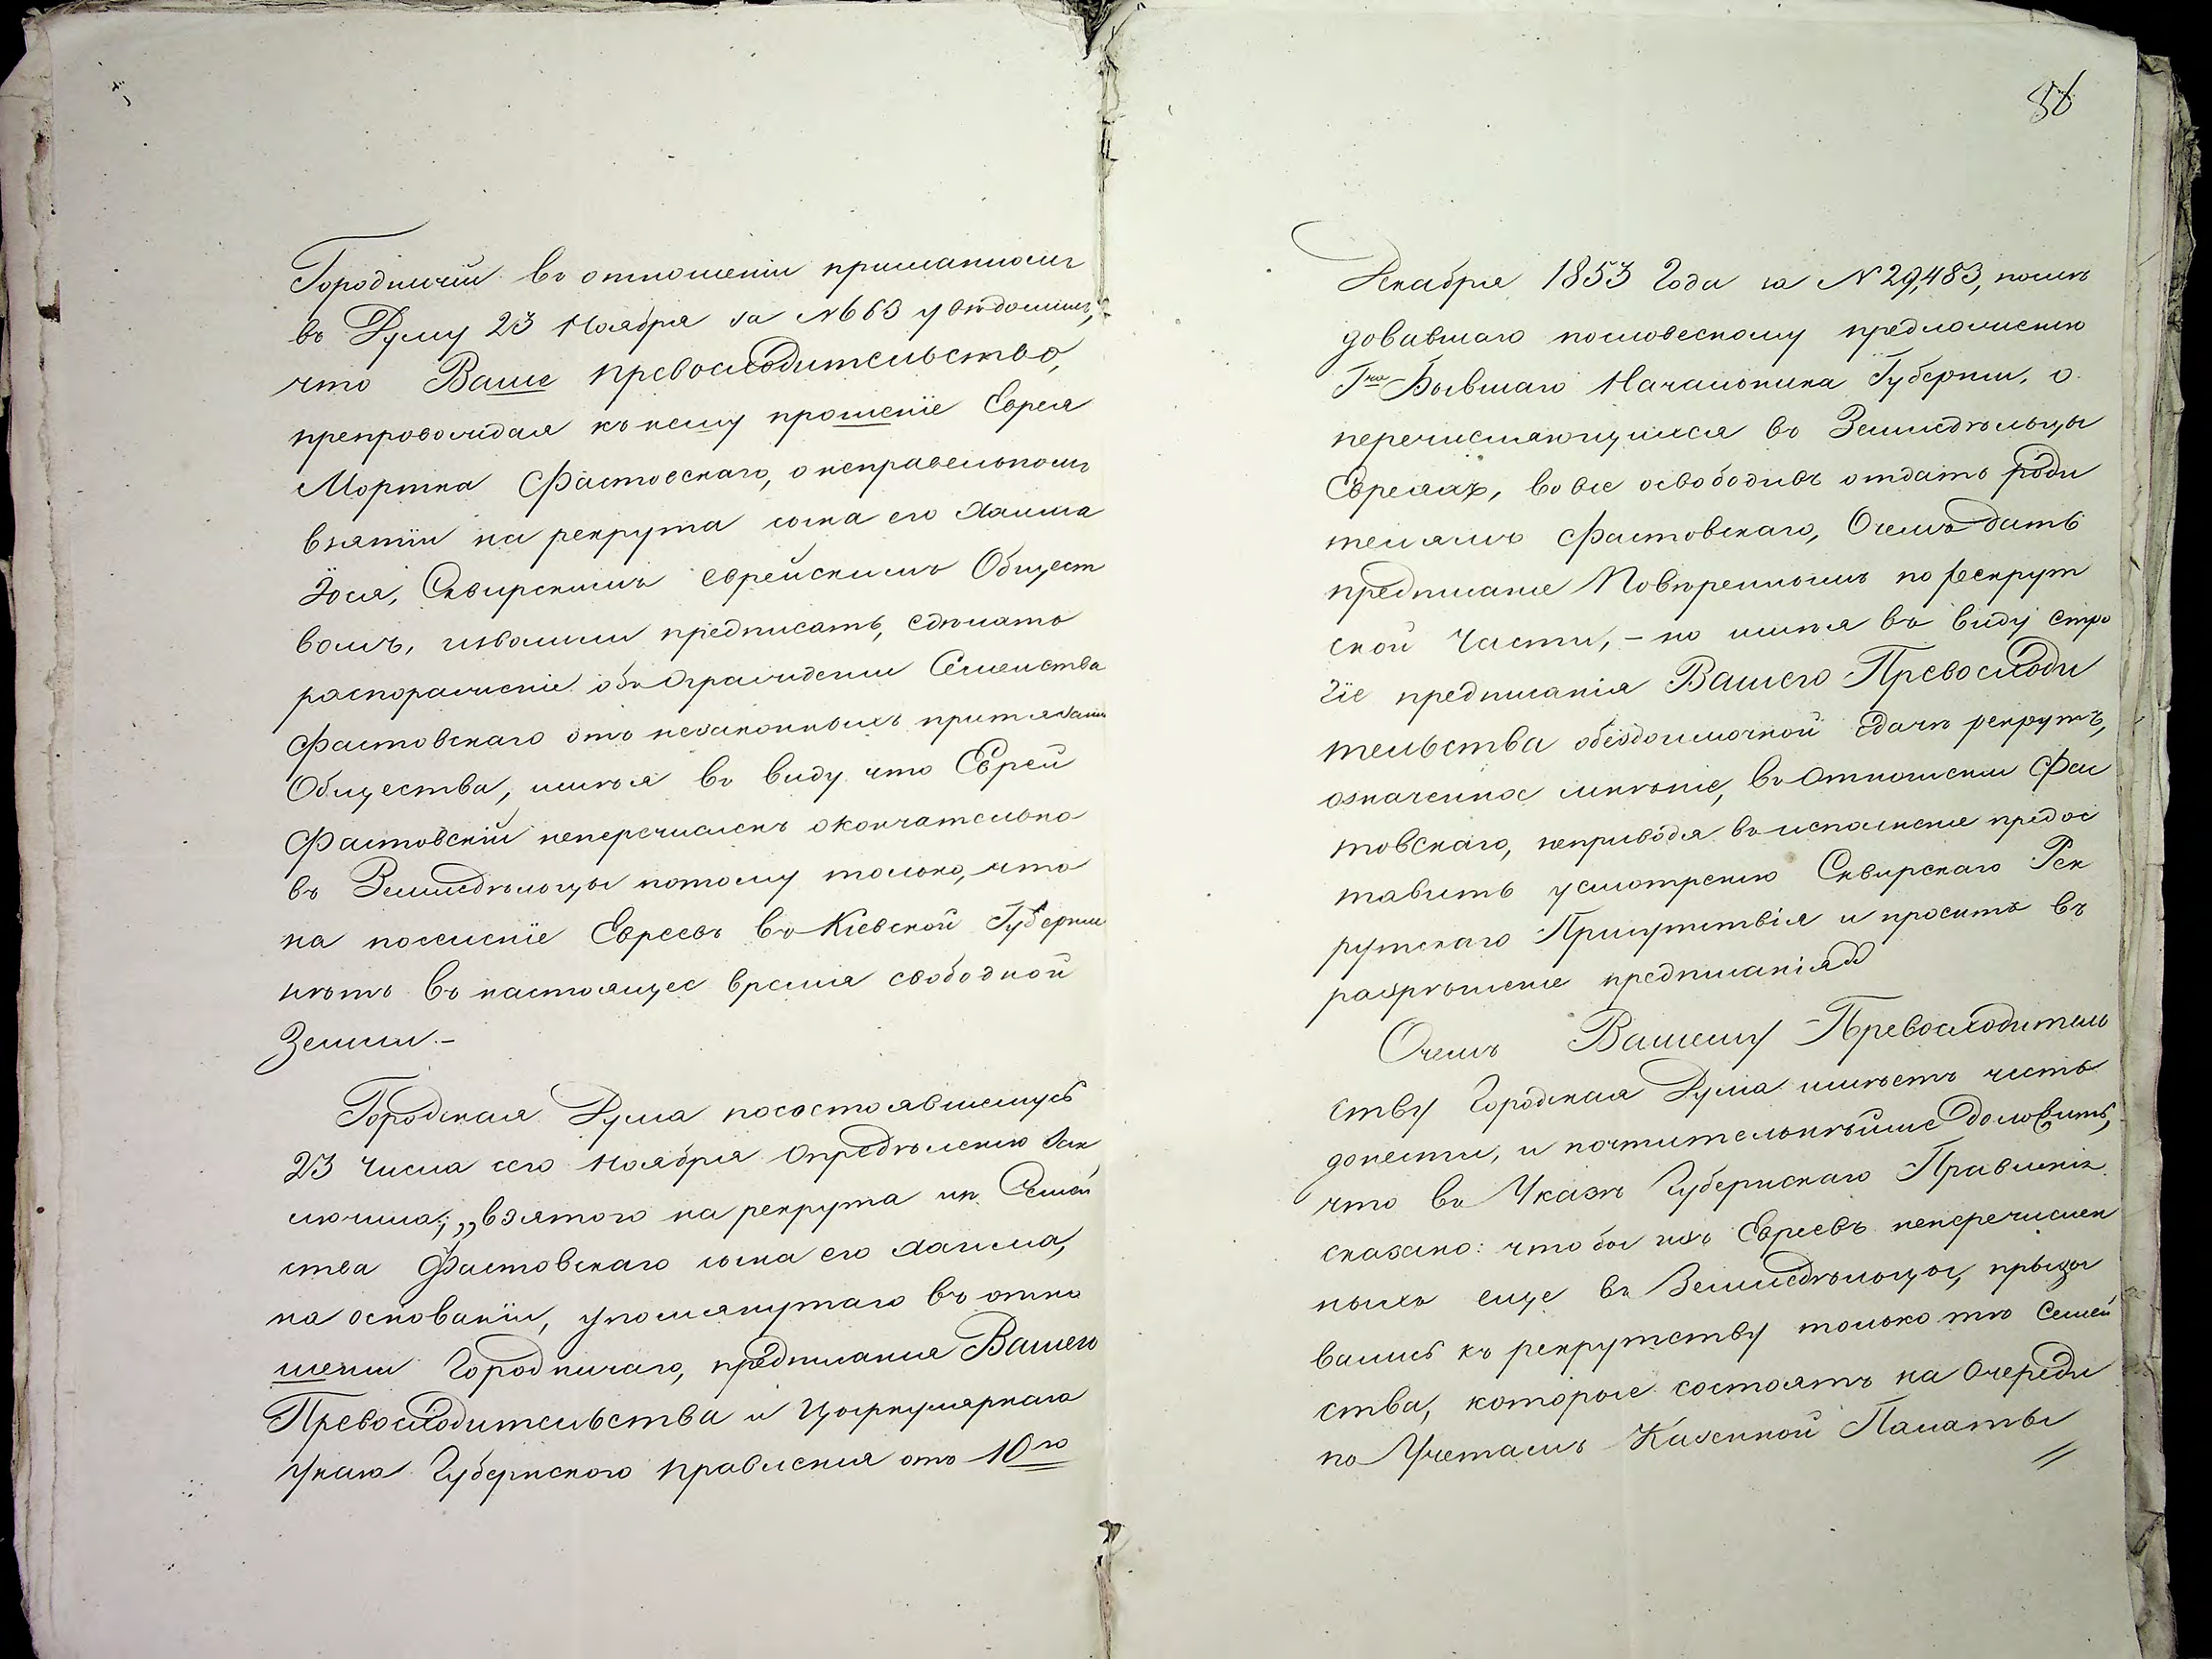 Городничій въ отношеніи присланномъ
въ Думу 23 Ноября за №663 увѣдомилъ,
что Ваше Превосходительство,
препровождая къ нему прошеніе Еврея
Мортка Фастовскаго, о неправельномъ
взятіи на рекрута сына его Хаима
Іося, Сквирскимъ Еврейскимъ Общест
вомъ, изволили предписать, сдѣлать
распоряженіе объ огражденіи Семейства
Фастовскаго отъ незаконныхъ притязаній
Общества, имѣя въ виду что Еврей
Фастовскій неперечисленъ окончательно
въ Земледѣльцы потому только, что
на поселеніе Евреевъ въ Кіевской Губерніи
нѣтъ въ настоящее время свободной
Земли.-
Городская Дума посостоявшемусь
23 числа сего Ноября Опредѣленію зак
лючила; „взятого на рекрута изъ Семей
ства Фастовскаго сына его Хаима,
на основаніи, упомянутаго въ отно
шеніи Городничаго, предписанія Вашего
Превосходительства и Цыркулярнаго
Указа Губернского правленія отъ 10го
86
Декабря 1853 Года за №29,483, послѣ
довавшаго пословесному предложенію
Гна Бывшаго Начальника Губерніи, о
перечисляющихся въ Земледѣльцы
Евреяхъ, вовсе освободивъ отдать роди
телямъ Фастовскаго, О чемъ дать
предписаніе Повѣреннымъ по Рекрут
ской Части, - но имѣя въ виду стро
гіе предписанія Вашего Превосходи
тельства обездоимочной сдачѣ рекрутъ,
означенное мнѣніе, въ Отношеніи Фас
товскаго, неприводя въ исполненіе предос
тавить усмотренію Сквирскаго Рек
рутскаго Присутствія и просить въ
разрѣшеніе предписанія“
О чемъ Вашему Превосходитель
ству Городская Дума имѣетъ честь
донести, и почтительнѣйше доложить,
что въ Указѣ Губернскаго Правленія
сказано: чтобы изъ Евреевъ неперечислен
ныхъ еще въ Земледѣльцы, призы
вались къ рекрутству только тѣ Семей
ства, которые состоятъ на Очереди
по Учетамъ Казенной Палаты